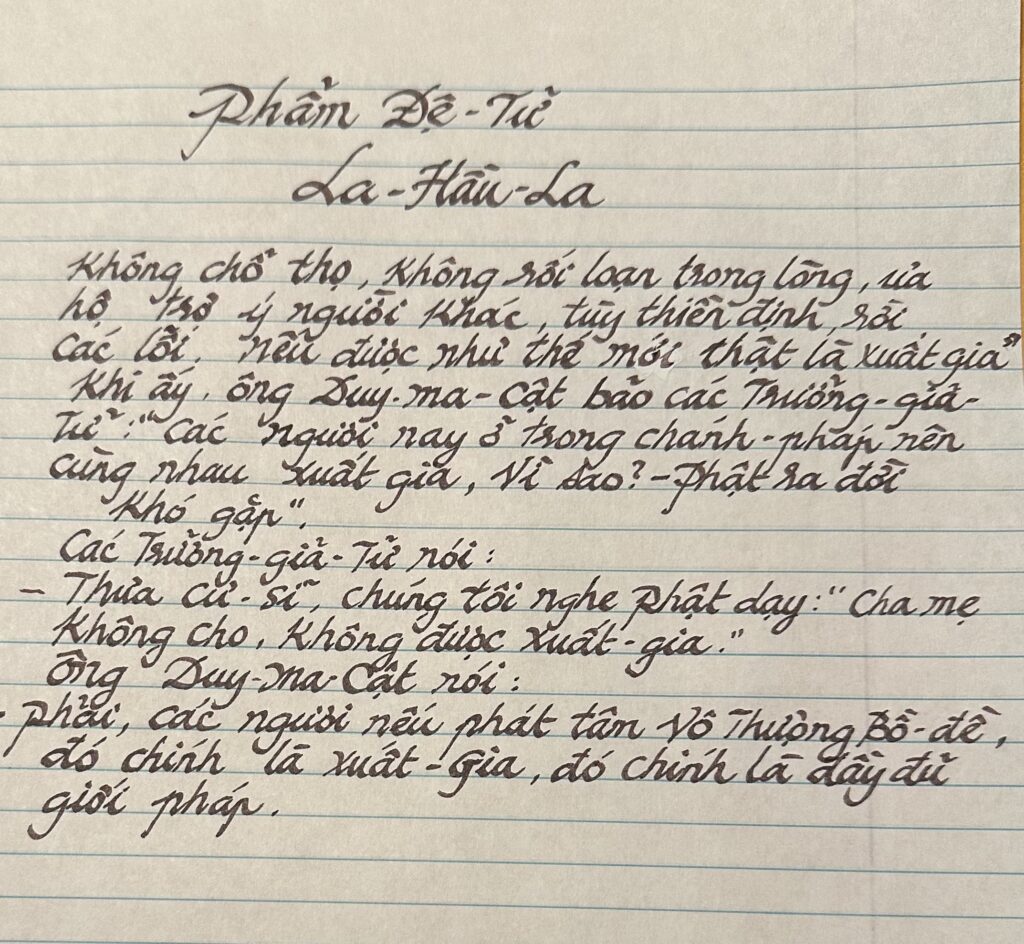 Phẩm Đệ-Tử
La-Hầu-La
Không chỗ thọ, Không rối loạn trong lòng, ủa
hộ trợ ý người Khác, tùy thiền định, rời
Các lỗi. Nếu được như thế mới thật là xuất gia"
Khi ấy, ông Duy-ma-Cật bảo các Trưởng-giả-
Tử: "Các người nay ở trong chánh-pháp nên
cùng nhau xuất gia, Vì sao? - Phật ra đời
Khó gặp".
Các Trưởng-giả-Tử nói:
- Thưa cư-sĩ, chúng tôi nghe Phật dạy: "Cha mẹ
Không cho, Không được xuất-gia."
Ông Duy-ma-Cật nói:
- Phải, các người nếu phát tâm Vô Thượng Bồ-đề,
đó chính là xuất-Gia, đó chính là đầy đủ
giới pháp.